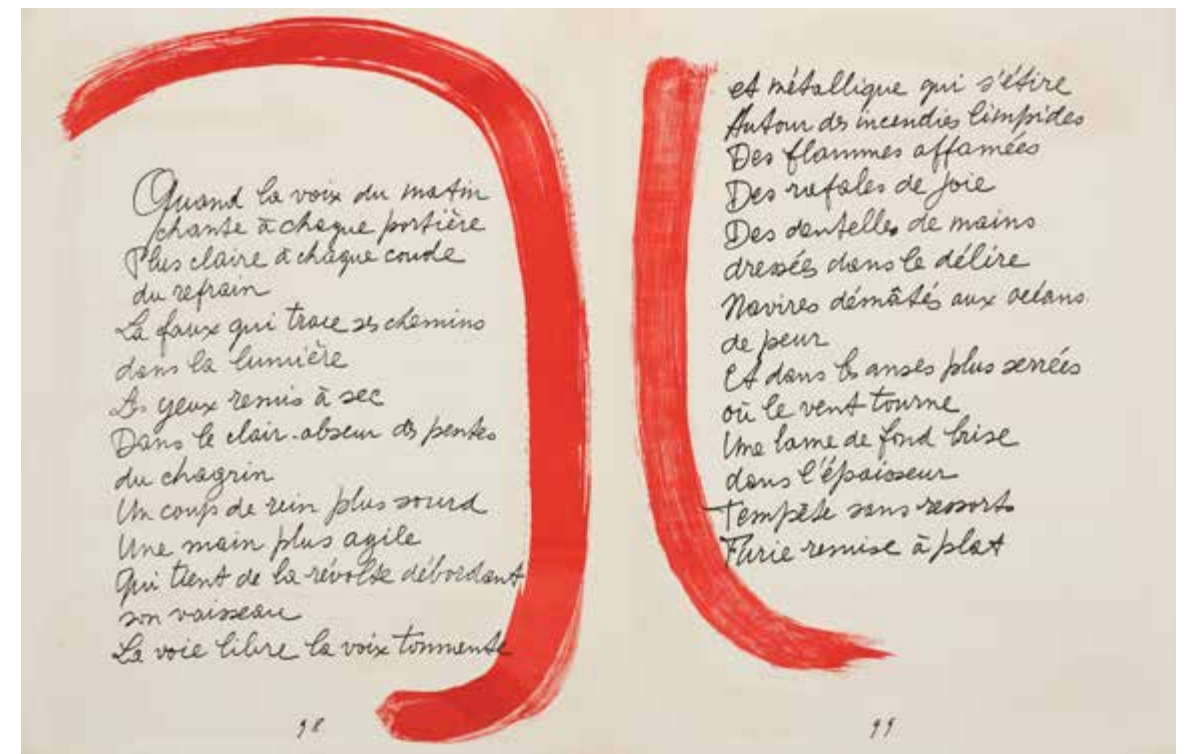 Quand la voix du matin
chante à chaque portière
Plus claire à chaque coude
du refrain
La faux qui trace ses chemins
dans la lumière
Les yeux remis à sec
Dans le clair-obscur des pentes
du chagrin
Un coup de rein plus sourd
Une main plus agile
Qui tient de la révolte débordant
son vaisseau
La voie libre la voix tonnante
98
et métallique qui s'étire
Autour des incendies limpides
Des flammes affamées
Des rafales de joie
Des dentelles de mains
dressées dans le délire
Navires démâtés aux océans
de peur
Et dans les anses plus serrées
où le vent tourne
Une lame de fond brise
dans l'épaisseur
Tempête sans ressorts
Furie remise à plat
99